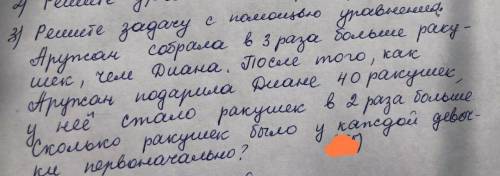 3) Решите задачу с помощью уравнения.
Аружан собрала в 3 раза больше раку-
шек, чем Диана. После того, как
Аружан подарила Диане 40 ракушек,
у неё стало ракушек в 2 раза больше
Сколько ракушек было у каждой девоч-
ки первоначально?